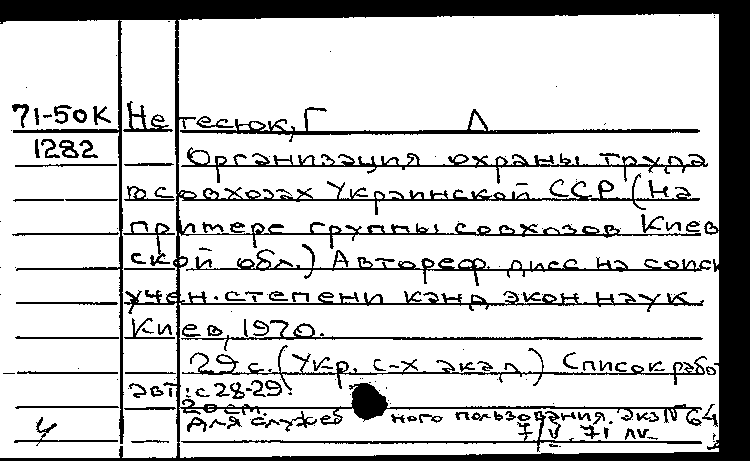 71-50К Нетесюк, Г Л
1282 Организация охраны труда
в совхозах Украинской ССР (На
примере группы совхозов Киев
ской обл.) Автореф дисс на соиск
учен. степени канд экон. наук
Киев, 1970.
29 с. (Укр. с-х акад) Список работ
авт: с 28-29.
20 см.
Для служеб ного пользования. экз N 64
У 7/V 71